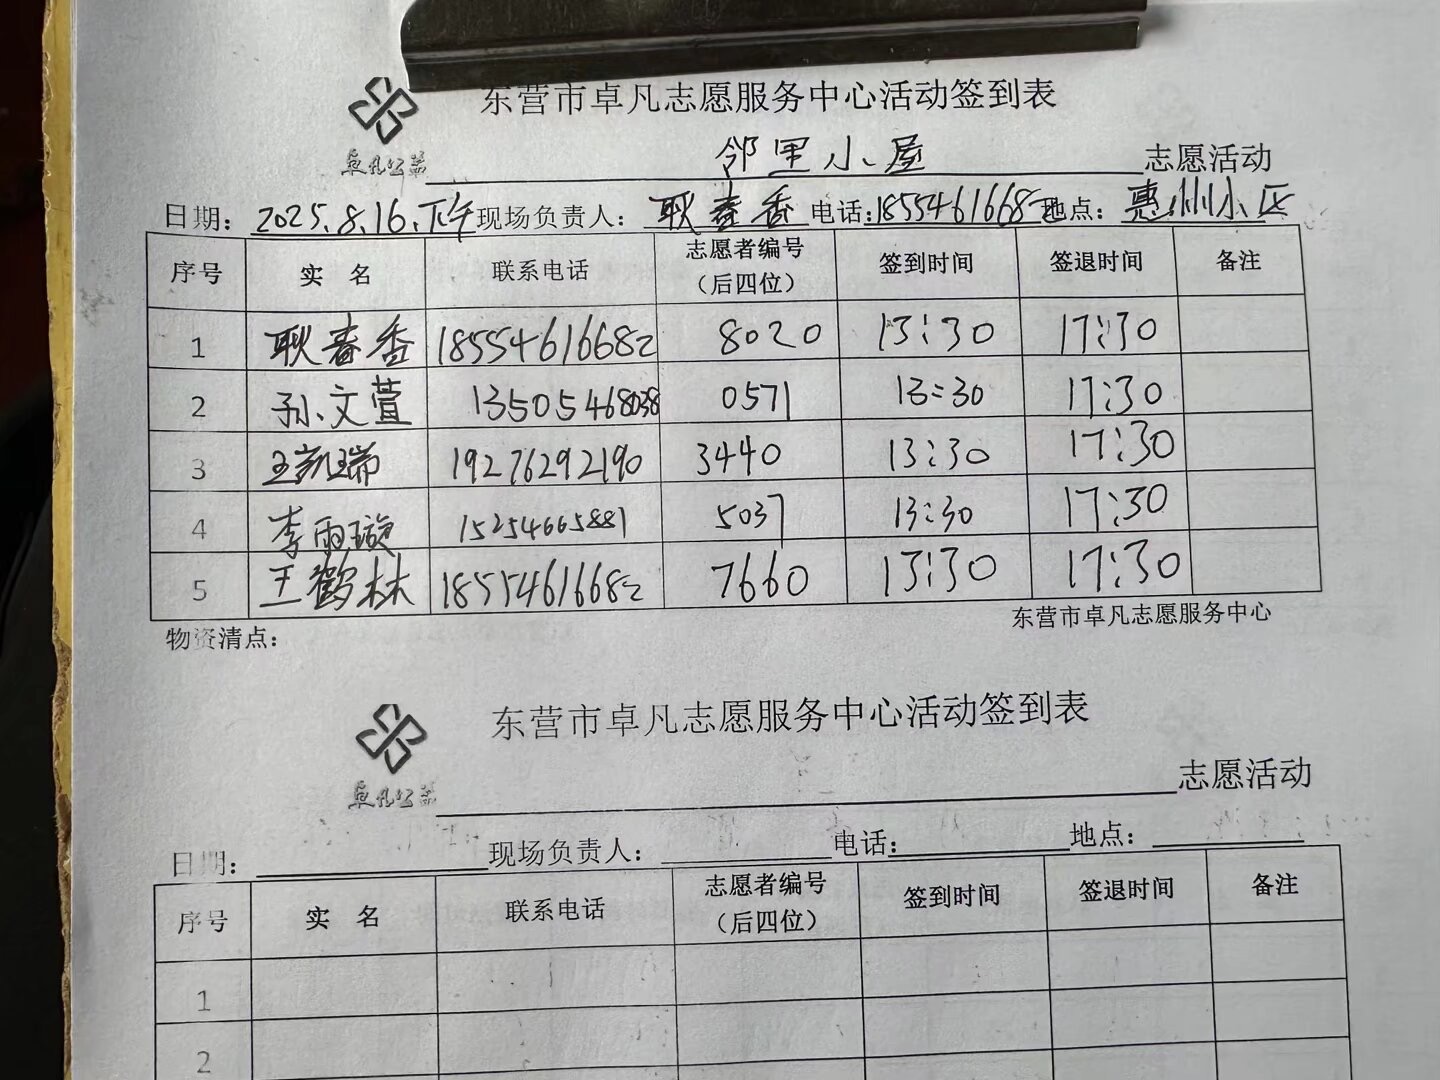 东营市卓凡志愿服务中心活动签到表
卓凡公益
邻里小屋 志愿活动
日期：2025.8.16.下午 现场负责人：耿春香 电话：18554616682 地点：惠州小区
序号 实 名 联系电话 志愿者编号（后四位） 签到时间 签退时间 备注
1 耿春香 18554616682 8020 13:30 17:30
2 孙文萱 13505468038 0571 13:30 17:30
3 王凯瑞 19276292190 3440 13:30 17:30
4 李雨璇 15254665881 5037 13:30 17:30
5 王鹤林 18554616682 7660 13:30 17:30
东营市卓凡志愿服务中心
物资清点：
东营市卓凡志愿服务中心活动签到表
卓凡公益
志愿活动
日期： 现场负责人： 电话： 地点：
序号 实 名 联系电话 志愿者编号（后四位） 签到时间 签退时间 备注
1
2